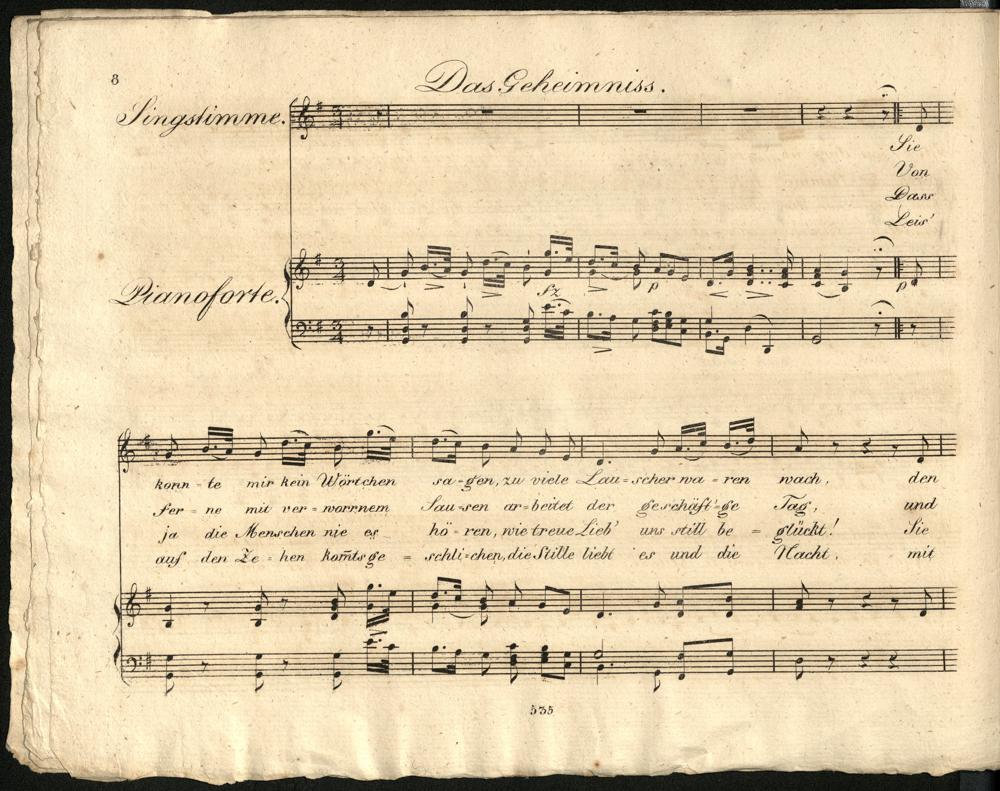 8
Das Geheimniss.
Singstimme.
Sie
Von
Dass
Leis'
Pianoforte.
sz
p
p
konn-te mir kein Wörtchen sa-gen, zu viele Lau-scher wa-ren wach, den
fer-ne mit ver-worrnem Sau-sen ar-beitet der geschäft'-ge Tag, und
ja die Menschen nie es hö-ren, wie treue Lieb' uns still be-glückt! Sie
auf den Ze-hen kom̄ts ge-schli-chen, die Stille liebt es und die Nacht, mit
535